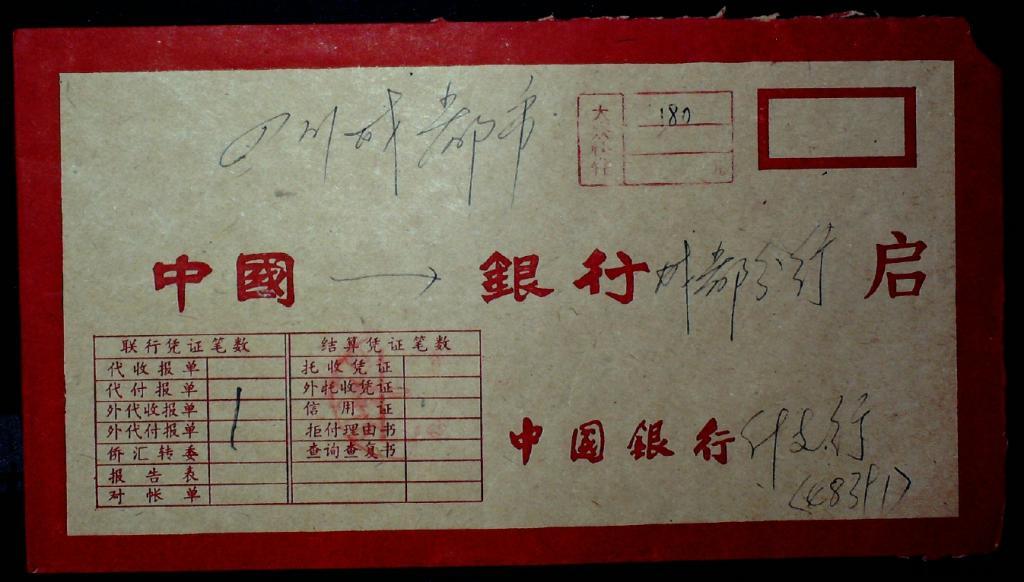 四川成都市
大 180
行 元
中國 → 銀行成都分行 启
联行凭证笔数 结算凭证笔数
代收报单 托收凭证
代付报单 外托收凭证
外代收报单 信用证
外代付报单 拒付理由书
侨汇转委 查询查复书
报告表
对帐单
中國銀行 支行